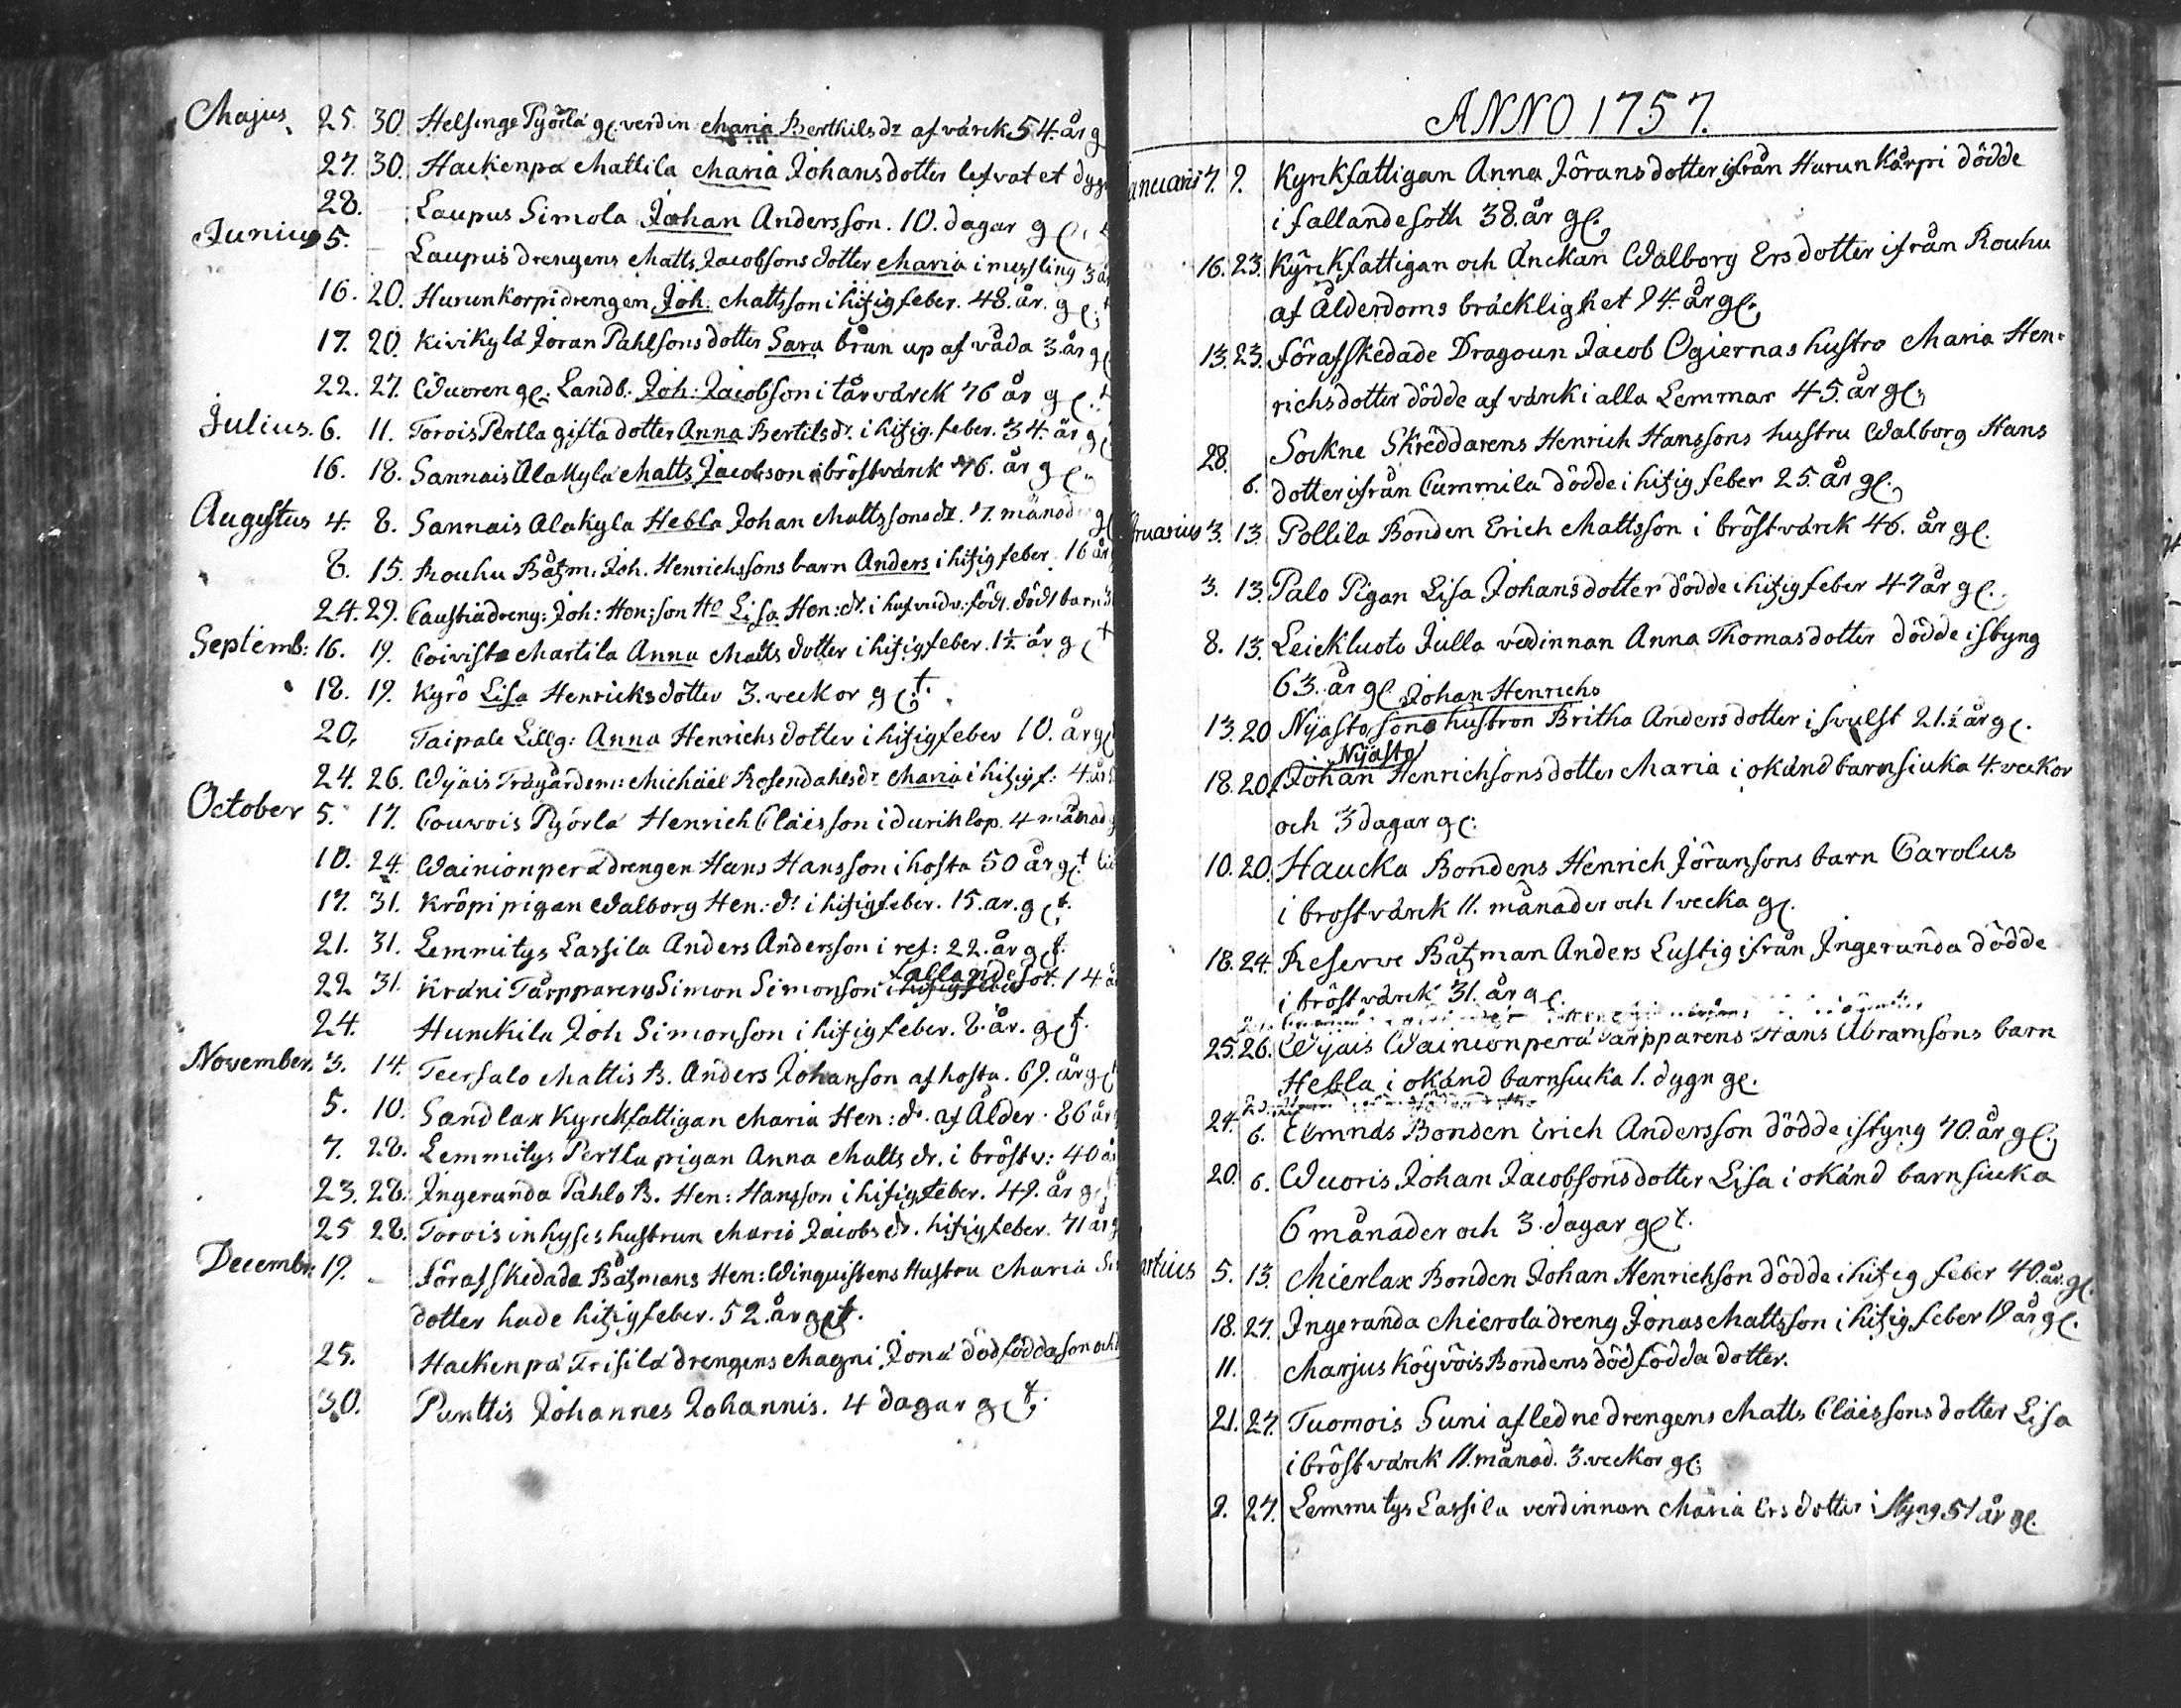 Majus. 25. 30 Helsinge Pyörlä gl. verdin Maria Berthilsdr af värck 54. år g
27. 30. Hackenpä Mattila Maria Johansdotter lefvat et dyg
28. Laupus Simola Johan Andersson. 10. dagar gl.
Junius 5. — Laupus drengens Matts Jacobsons dotter Maria i messling 3 år
16. 20. Hurunkorpi drengen Joh. Mattsson i hitzig feber. 48. år. gl. †
17. 20. Kivikylä Jöran Pahlsons dotter Sara brän up af våda 3. år gl
22. 27. Wuoren gl. Landb. Joh: Jacobson i tärvärck 76 år gl. †
Julius. 6. 11. Torois Pertla gifta dotter Anna Bertilsdr. i hitzig. feber. 34. år g
16. 18. Sannais Alakylä Matts Jacobson i bröstvärck 76. år gl.
Augustus 4. 8. Sannais Alakyla Hebla Johan Mattssons dr. 7. månad gl
8. 15. Rouhu Båtzm: Joh. Henrichssons barn Anders i hitzig feber. 16 år
24. 29. Caustia dreng: Joh: Hen:son Ho Lisa Hen: dr. i hufvudv: föd. död barn
Septemb: 16. 19. Coivisto Martila Anna Matts dotter i hitzig feber. 1½ år gl †
18. 19. Kyrö Lisa Henricks dotter 3. veckor gl. †.
20. Taipale Lillg: Anna Henrichs dotter i hitzig feber 10. år gl
24. 26. Wyäis Trägårdsm: Michäel Rosendahls dr Maria i hitzig f: 4. år
October 5. 17. Couwois Pyörlä Henrich Cläesson i durchlop. 4 månad g
10. 24. Wainionperä drengen Hans Hansson i hosta 50 år gl. †
17. 31. Kröpi pigan Walborg Hen: dr. i hitzig feber. 15. år. gl. †.
21. 31. Lemmitys Lassila Anders Andersson i ref: 22. år gl †.
fallande
22 31. Kräni Tårpparens Simon Simonson i hitzig feber sot. 14 år
24. Hunckila Joh Simonson i hitzig feber. 8. år. gl †.
November. 3. 14. Teersalo Mattis B. Anders Johanson af hosta. 69. år gl †
5. 10. Sandlax Kyrckfattigan Maria Hen: dr. af Ålder. 86 år
7. 28. Lemmitys Pertla pigan Anna Matts dr. i bröstv: 40 år
23. 28. Ingeranda Pahlo B. Hen: Hansson i hitzig feber. 49. år gl
25 28. Torois inhyses hustrun Maria Jacobs dr. hitzig feber. 71 år g
Decembr: 19. — Förafskedade Båtzmans Hen: Winquistens Hustru Maria
dotter hade hitzig feber. 52. år gl †.
25. Hackenpä Trisilä drengens Magni Jonä dödfödda son och
30. Punttis Johannes Johannis. 4 dagar gl †.
ANNO 1757.
anuari 7. 9. Kyrckfattigan Anna Jörans dotter ifrån Hurunkårpi dödde
i fallandesoth 38. år gl.
16. 23. Kyrckfattigan och Änckan Walborg Ers dotter ifrån Rouhu
af Ålderdoms bräcklighet 94. år gl.
13. 23. Förafskedade Dragoun Jacob Ogiernas hustro Maria Hen-
richsdotter dödde af värck i alla Lemmar 45. år gl.
28. Sockne Skreddarens Henrich Hanssons hustru Walborg Hans
6. dotter ifrån Cummila dödde i hitzig feber 25. år gl.
bruarius 3. 13. Pollila Bonden Erich Mattsson i bröstvärck 46. år gl.
3. 13. Palo Pigan Lisa Johansdotter dödde i hitzig feber 47 år gl.
8. 13. Leickluoto Julla verdinnan Anna Thomasdotter dödde i styng
63. år gl. Johan Henrichs
13. 20 Nyästo sons hustron Britha Anders dotter i svulst 21.½ år gl.
Nyästo
18. 20. Johan Henrichsons dotter Maria i okänd barnsiuka 4. veckor
och 3 dagar gl.
10. 20. Haucka Bondens Henrich Jöransons barn Carolus
i brostvärck 11. månader och 1 vecka gl.
18. 24. Reserve Båtzman Anders Lustig ifrån Ingeranda dödde
i bröstvärck 31. år gl.
25. 26. Wyäis Wainionperä Tårpparens Hans Abramsons barn
Hebla i okänd barnsiuka 1. dygn gl.
24. 6. Elmnäs Bonden Erich Andersson dödde i styng 70. år gl.
20. 6. Wuoris Johan Jacobsons dotter Lisa i okänd barnsiuka
6 månader och 3. dagar gl †.
artius 5. 13. Mierlax Bonden Johan Henrichson dödde i hitzig feber 40. år. gl.
18. 27. Ingeranda Mierola dreng Jonas Mattsson i hitzig feber 19 år gl.
11. Marjus Köyvöis Bondens dödfödda dotter.
21. 27. Tuomois Suni afledne drengens Matts Cläessons dotter Lisa
i bröstvärck 11. månad. 3. veckor gl.
9. 27. Lemmitys Lassila verdinnan Maria Ersdotter i styng 51 år gl.